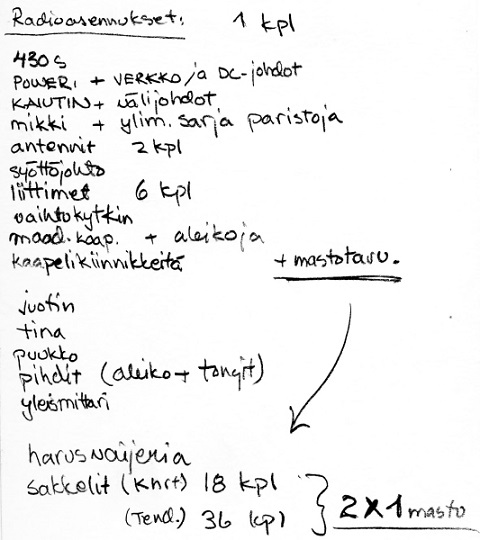 Radioasennukset: 1 kpl
430s
POWERI + VERKKO ja DC-johdot
KAIUTIN + välijohdot
mikki + ylim. sarja paristoja
antennit 2 kpl
syöttöjohto
liittimet 6 kpl
vaihtokytkin
maad.kaap. + aleikoja
kaapelikiinnikkeitä + mastotaru.
juotin
tina
puukko
pihdit (aleiko + tongit)
yleismittari
harusvaijeria
sakkelit (Khrt) 18 kpl
(Tend.) 36 kpl
2 x 1 masto